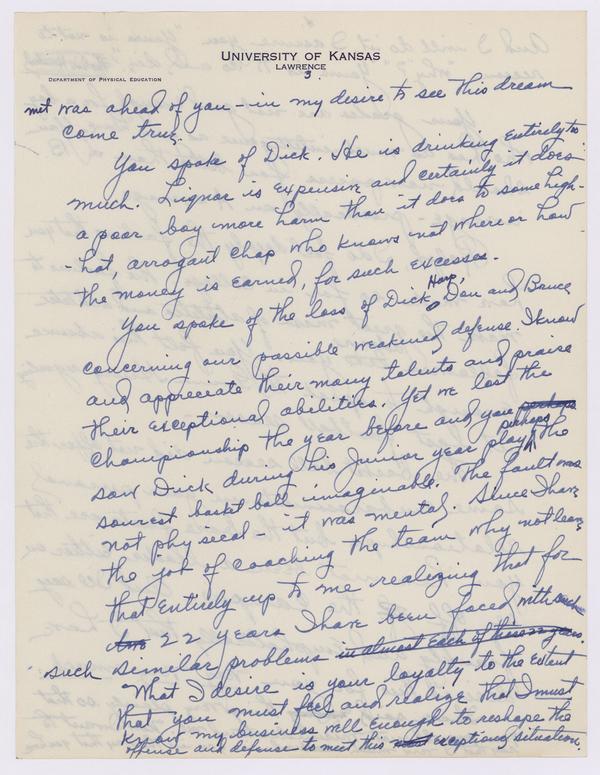 UNIVERSITY OF KANSAS
LAWRENCE
DEPARTMENT OF PHYSICAL EDUCATION
3.
met was ahead of you - in my desire to see this dream
come true.
You spoke of Dick. He is drinking entirely too
much. Liquor is expensive and certainly it does
a poor boy more harm than it does to some high-
-hat, arrogant chap who knows not where or how
the money is earned, for such excesses.
You spoke of the loss of Dick Harp, Dan and Bruce
concerning our possible weakened defense. I know
and appreciate their many talents and praise
their exceptional abilities. Yet we lost the
Championship the year before and you perhaps
saw Dick during his Junior year play perhaps the
sourest basket ball imaginable. The fault was
not physical - it was mental. Since I have
the job of coaching the team why not leave
that entirely up to me realizing that for
22 years I have been faced with such
such similar problems in almost each of these 22 years.
What I desire is your loyalty to the extent
that you must feel and realize that I must
know my business well enough to reshape the
offense and defense to meet this exceptional situation.